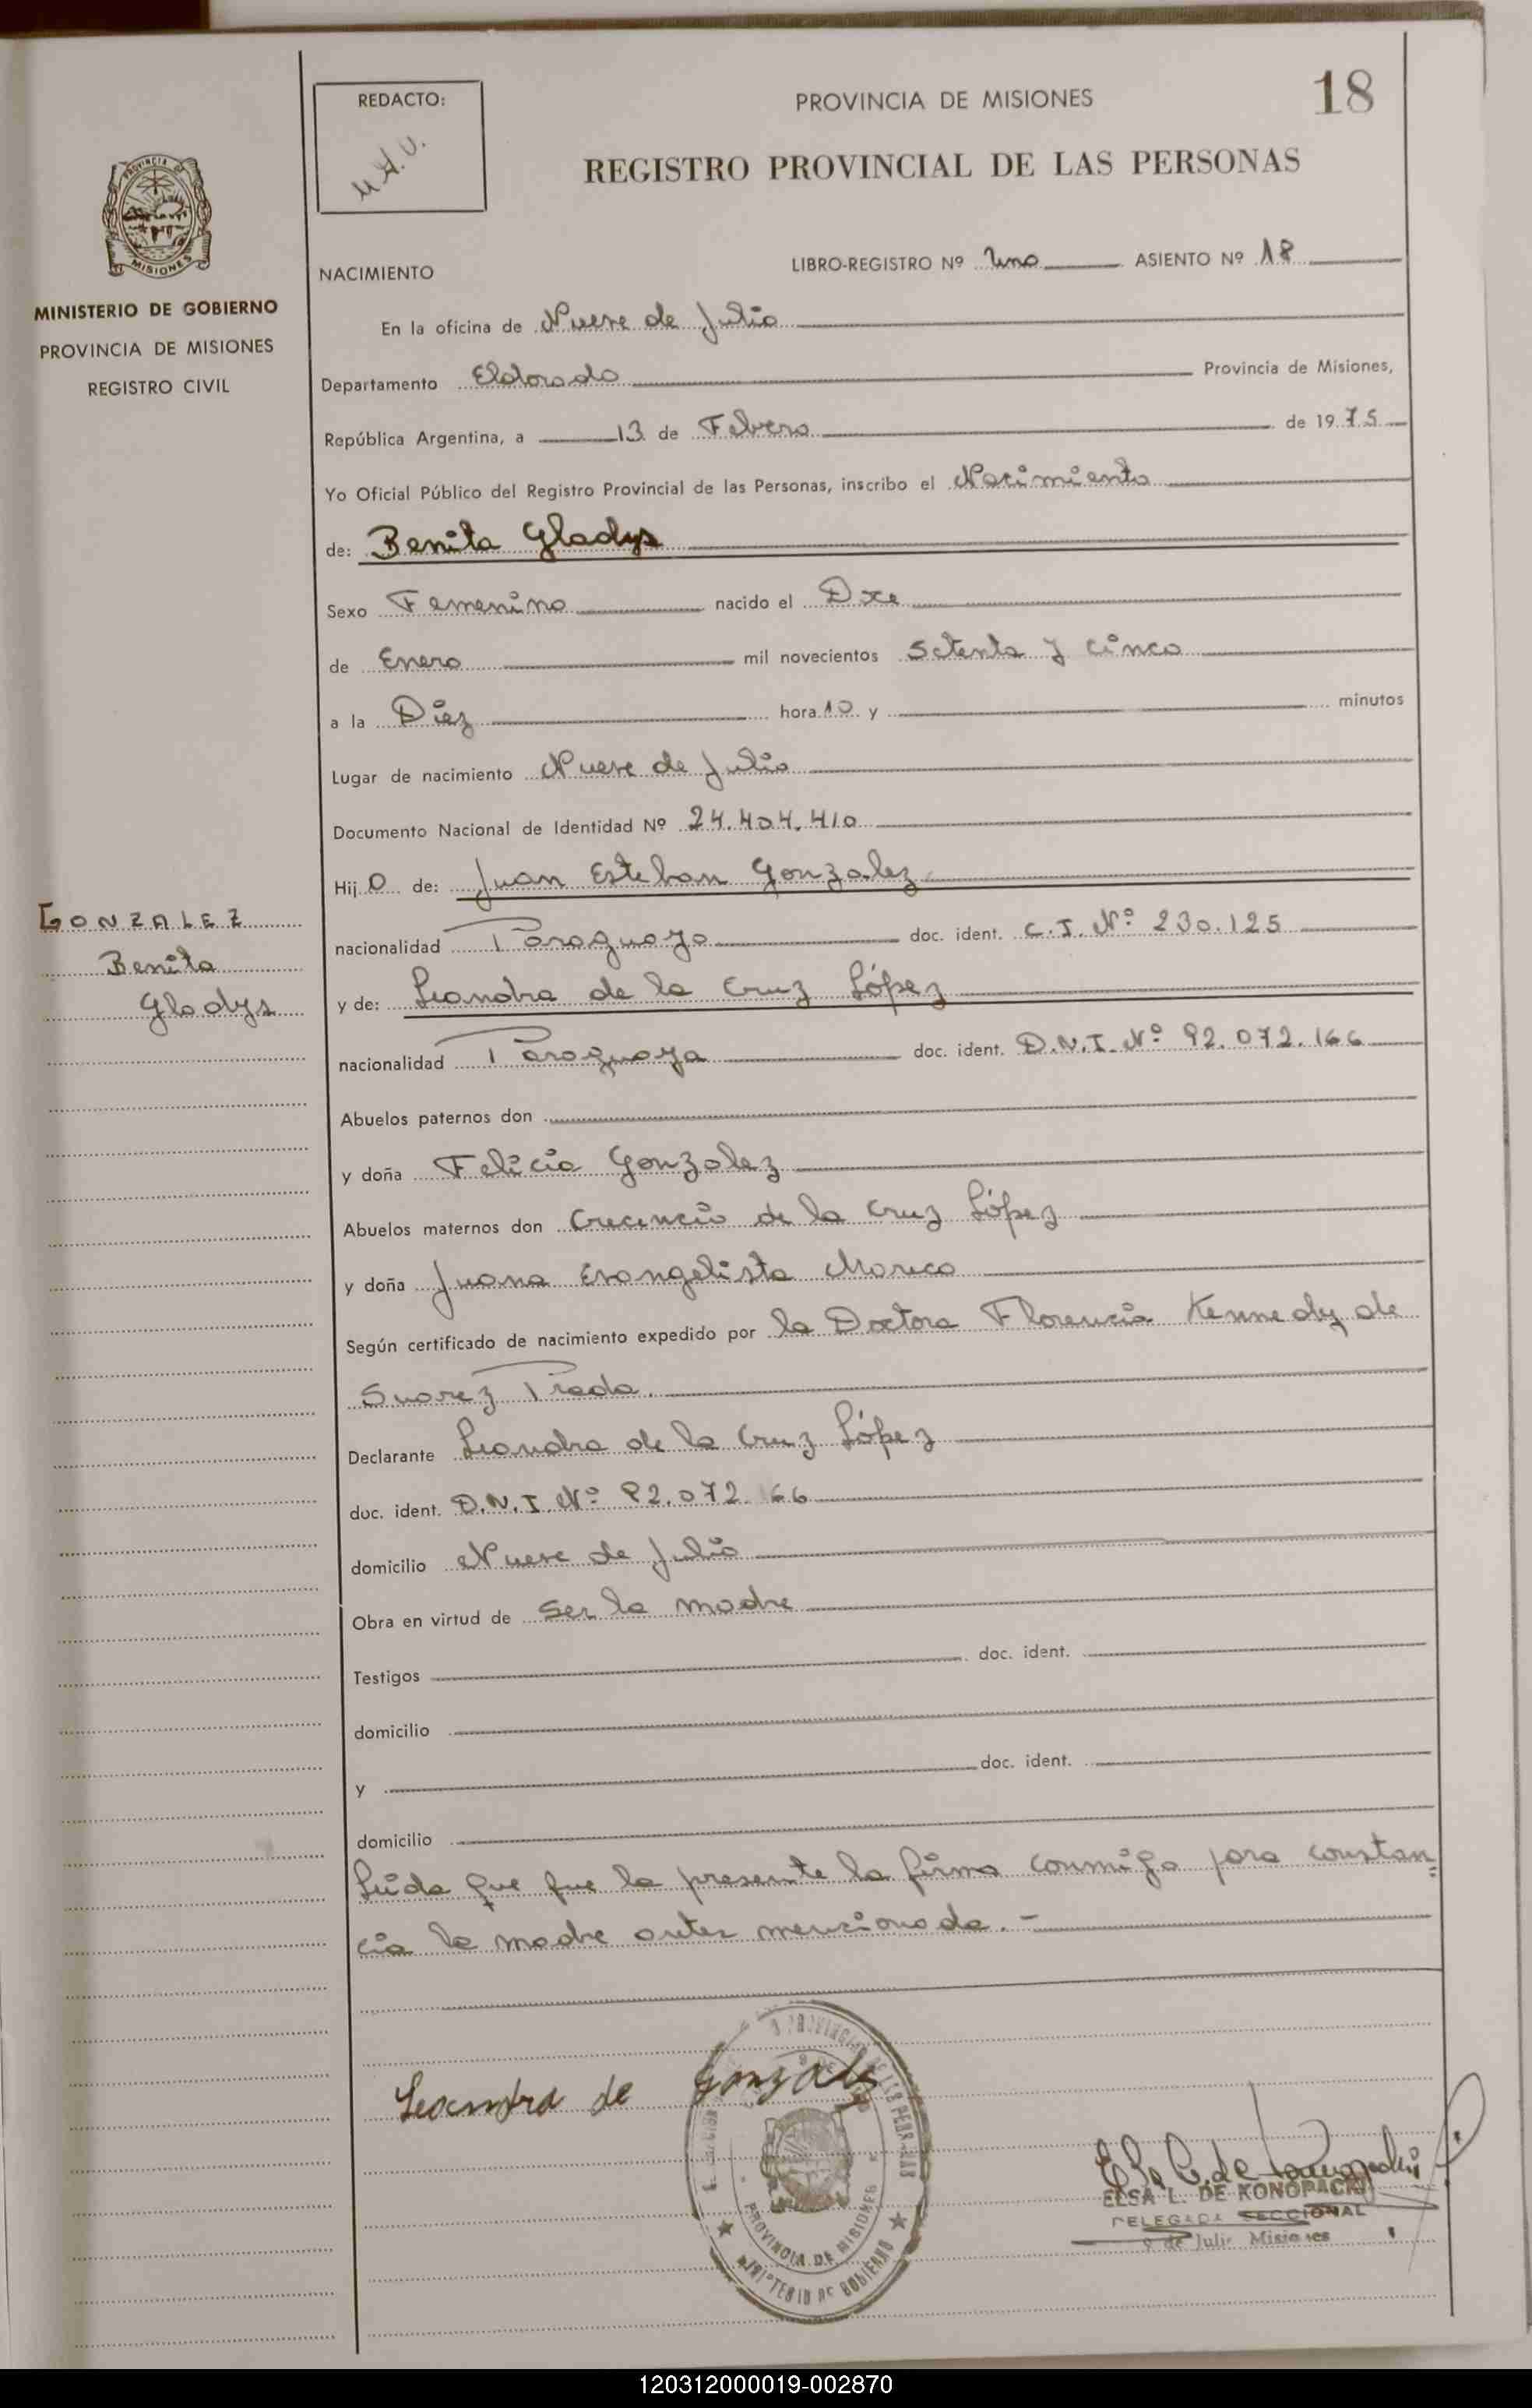 18
REDACTO:
M.A.U.
PROVINCIA DE MISIONES
REGISTRO PROVINCIAL DE LAS PERSONAS
PROVINCIA
MISIONES
MINISTERIO DE GOBIERNO
PROVINCIA DE MISIONES
REGISTRO CIVIL
NACIMIENTO
LIBRO-REGISTRO Nº Uno ASIENTO Nº 18
En la oficina de Nueve de Julio
Departamento Eldorado Provincia de Misiones,
República Argentina, a 13 de Febrero de 1975
Yo Oficial Público del Registro Provincial de las Personas, inscribo el Nacimiento
de: Benita Gladys
Sexo Femenino nacido el
de Enero mil novecientos Setenta y cinco
a la Diez hora 10 y minutos
Lugar de nacimiento Nueve de Julio
Documento Nacional de Identidad Nº 24.404.410
Hij O de: Juan Esteban Gonzalez
GONZALEZ
Benita
Gladys
nacionalidad Paraguayo doc. ident. C.I. Nº 230.125
y de: Leandra de la Cruz López
nacionalidad Paraguaya doc. ident. D.N.I. Nº 92.072.166
Abuelos paternos don
y doña Felicia Gonzalez
Abuelos maternos don Crecencio de la Cruz López
y doña Juana Evangelista
Según certificado de nacimiento expedido por la Doctora Florencia Kennedy de
Suarez Prada.
Declarante Leandra de la Cruz López
doc. ident. D.N.I. Nº 92.072.166
domicilio Nueve de Julio
Obra en virtud de ser la madre
Testigos doc. ident.
domicilio
y doc. ident.
domicilio
Leida que fue la presente la firma conmigo para constan=
cia la madre antes mencionada.-
Leandra de Gonzalez
PROVINCIA DE MISIONES
MINISTERIO DE GOBIERNO
ELSA L. DE KONOPACKI
DELEGADA SECCIONAL
9 de Julio Misiones
120312000019-002870